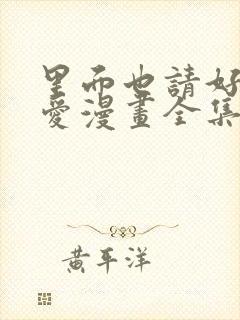 里面也請好
愛漫畫全集
黃平洋